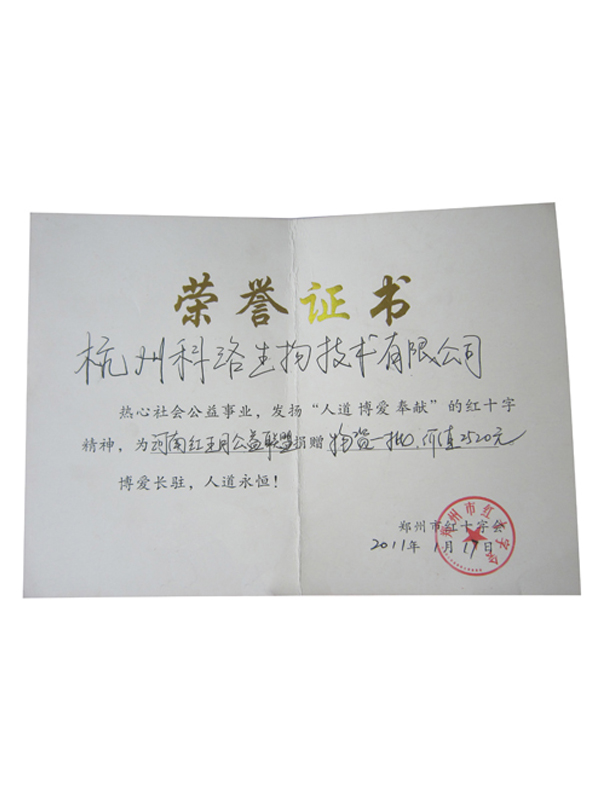 荣誉证书
杭州科洛生物技术有限公司
热心社会公益事业，发扬“人道 博爱 奉献”的红十字
精神，为河南红玉同公益联盟捐赠 物资一批，价值2520元
博爱长驻，人道永恒！
郑州市红十字会
2011年1月19日
郑州市红十字会